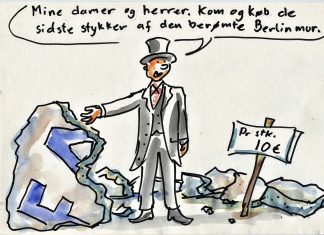 Mine damer og herrer. Kom og køb de
sidste stykker af den berømte Berlinmur.
Pr stk.
10€
EA